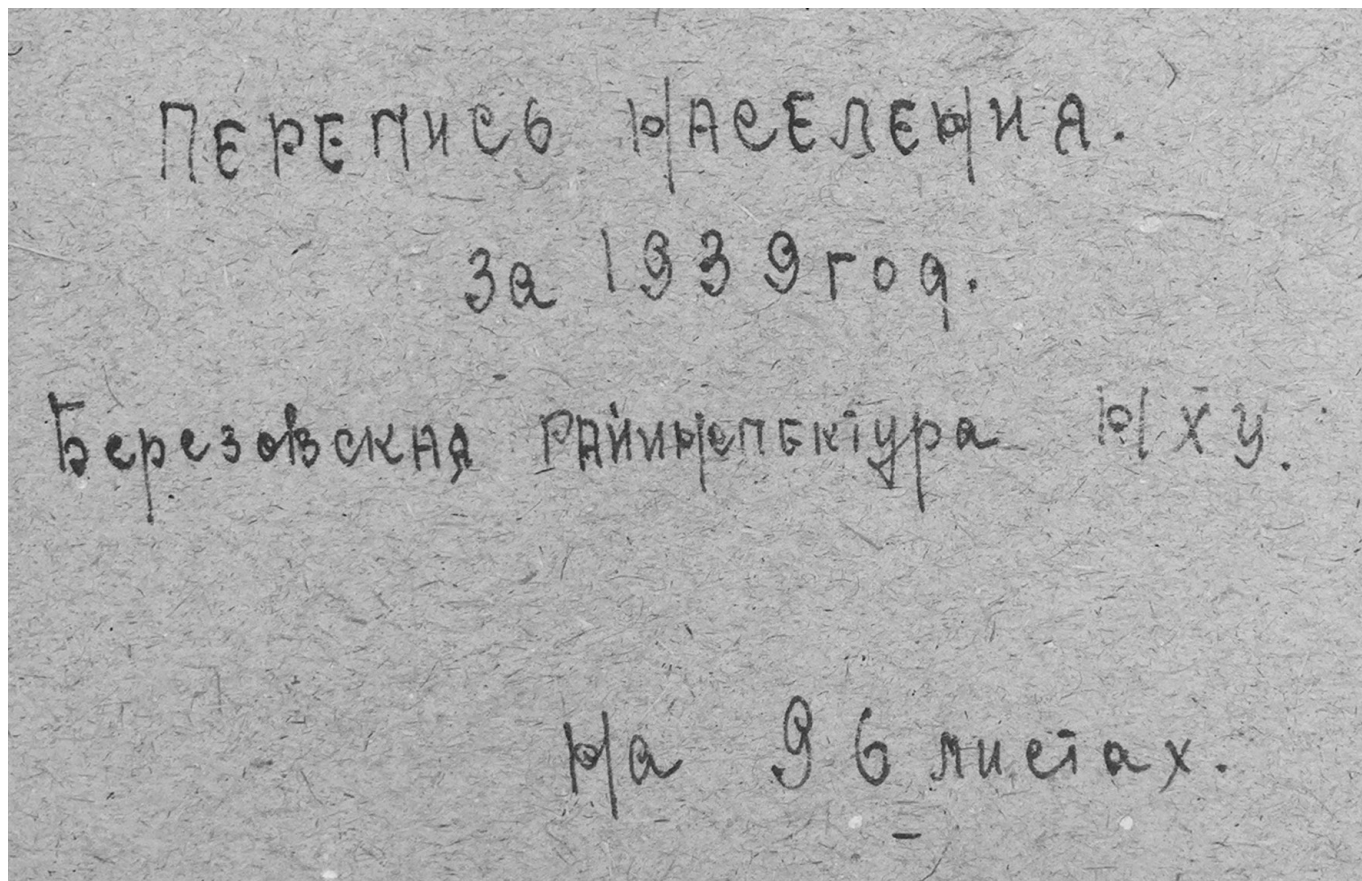 ПЕРЕПИСЬ НАСЕЛЕНИЯ.
За 1939 год.
Березовская РАЙИНСПЕКТУРА НХУ.
На 96 листах.